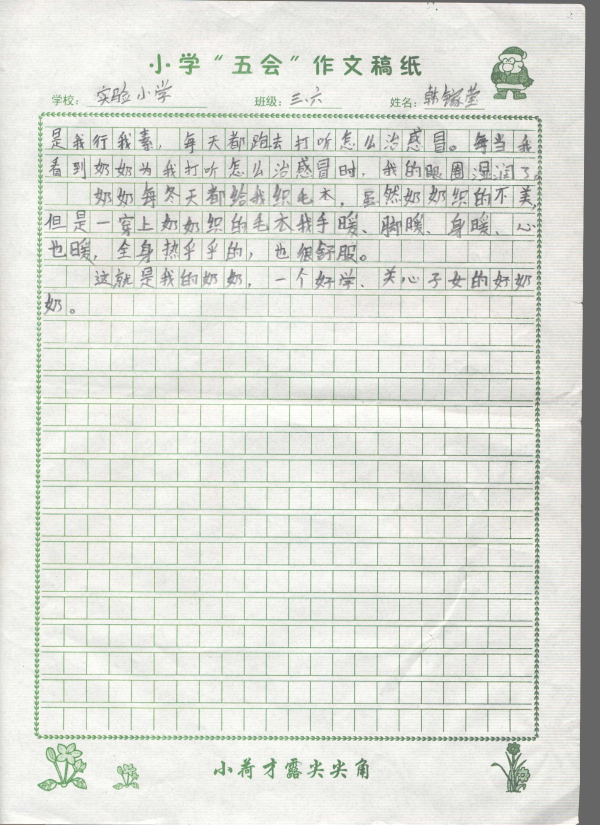 小学“五会”作文稿纸
学校：实验小学 班级：三.六 姓名：韩 莹
是我行我素，每天都跑去打听怎么治感冒。每当我
看到奶奶为我打听怎么治感冒时，我的眼圈湿润了。
奶奶每冬天都给我织毛衣，虽然奶奶织的不美，
但是一穿上奶奶织的毛衣我手暖、脚暖、身暖、心
也暖，全身热乎乎的，也很舒服。
这就是我的奶奶，一个好学、关心子女的好奶
奶。
小荷才露尖尖角